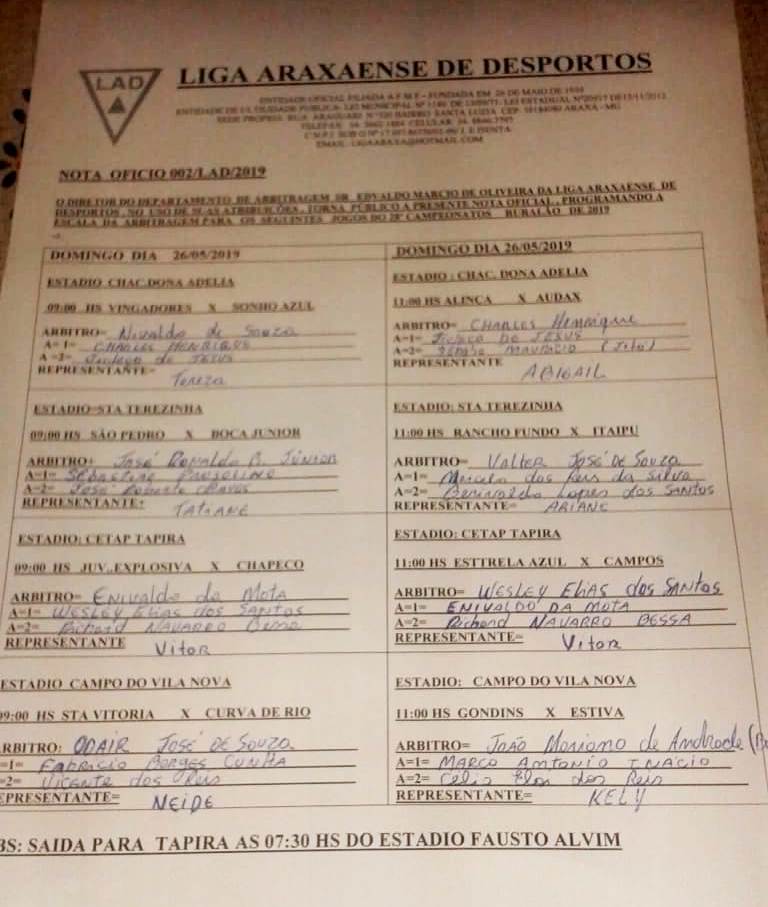 LAD
LIGA ARAXAENSE DE DESPORTOS
ENTIDADE OFICIAL FILIADA A F.M.F - FUNDADA EM 26 DE MAIO DE
ENTIDADE DE UTILIDADE PUBLICA- LEI MUNICIPAL Nº DE LEI ESTADUAL
SEDE PROPRIA RUA ARAGUARI BAIRRO SANTA LUZIA CEP ARAXA - MG
NOTA OFICIO 002/LAD/2019
O DIRETOR DO DEPARTAMENTO DE ARBITRAGEM SR. EDVALDO MARCIO DE OLIVEIRA DA LIGA ARAXAENSE DE
DESPORTOS , NO USO DE SUAS ATRIBUIÇÕES , TORNA PÚBLICO A PRESENTE NOTA OFICIAL , PROGRAMANDO A
ESCALA DA ARBITRAGEM PARA OS SEGUINTES JOGOS DO 28º CAMPEONATOS RURALÃO DE 2019
DOMINGO DIA 26/05/2019
ESTADIO CHAC.DONA ADELIA
09:00 HS VINGADORES X SONHO AZUL
ARBITRO= Nivaldo de Souza
A= 1= CHARLES HENRIQUE
A =2= de JESUS
REPRESENTANTE=
Tereza
DOMINGO DIA 26/05/2019
ESTADIO : CHAC. DONA ADELIA
11:00 HS ALINÇA X AUDAX
ARBITRO= CHARLES Henrique
A=1= DE JESUS
A=2= MAURICIO
REPRESENTANTE
ABIGAIL
ESTADIO=STA TEREZINHA
09:00 HS SÃO PEDRO X BOCA JUNIOR
ARBITRO+ José Ronaldo B. JÚNIOR
A=1= SEBASTIÃO
A=2= José Roberto
REPRESENTANTE+
TATIANE
ESTADIO: STA TEREZINHA
11:00 HS RANCHO FUNDO X ITAIPU
ARBITRO= VALTER JOSÉ DE SOUZA
A=1= Marcelo dos Reis da Silva
A=2= Lopes dos SANTOS
REPRESENTANTE=
ARIANE
ESTADIO: CETAP TAPIRA
09:00 HS JUV..EXPLOSIVA X CHAPECO
ARBITRO= ENIVALDO da MOTA
A=1= WESLEY Elias dos SANTOS
A=2= Richard NAVARRO
REPRESENTANTE
VITOR
ESTADIO: CETAP TAPIRA
11:00 HS ESTTRELA AZUL X CAMPOS
ARBITRO= WESLEY ELIAS dos SANTOS
A=1= ENIVALDO DA MOTA
A=2= Richard NAVARRO BESSA
REPRESENTANTE=
VITOR
ESTADIO CAMPO DO VILA NOVA
09:00 HS STA VITORIA X CURVA DE RIO
ARBITRO: ODAIR JOSÉ DE SOUZA
=1= FABRICIO BORGES CUNHA
=2= VICENTE dos Reis
EPRESENTANTE=
NEIDE
ESTADIO: CAMPO DO VILA NOVA
11:00 HS GONDINS X ESTIVA
ARBITRO= João Mariano de Andrade
A=1= MARCO ANTONIO INÁCIO
A=2= Célio dos Reis
REPRESENTANTE=
KELY
BS: SAIDA PARA TAPIRA AS 07:30 HS DO ESTADIO FAUSTO ALVIM